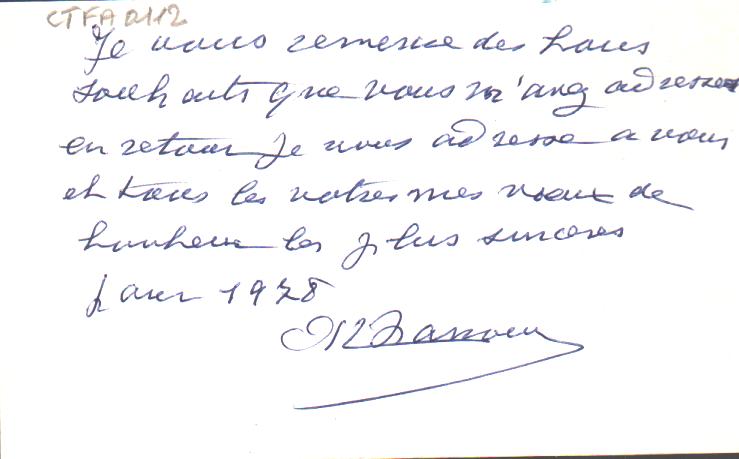 CTFA 0112
Je vous remercie des bons
souhaits que vous m'avez adresses
en retour Je vous adresse a vous
et tous les votres mes vœux de
bonheur les plus sinceres
pour 1978